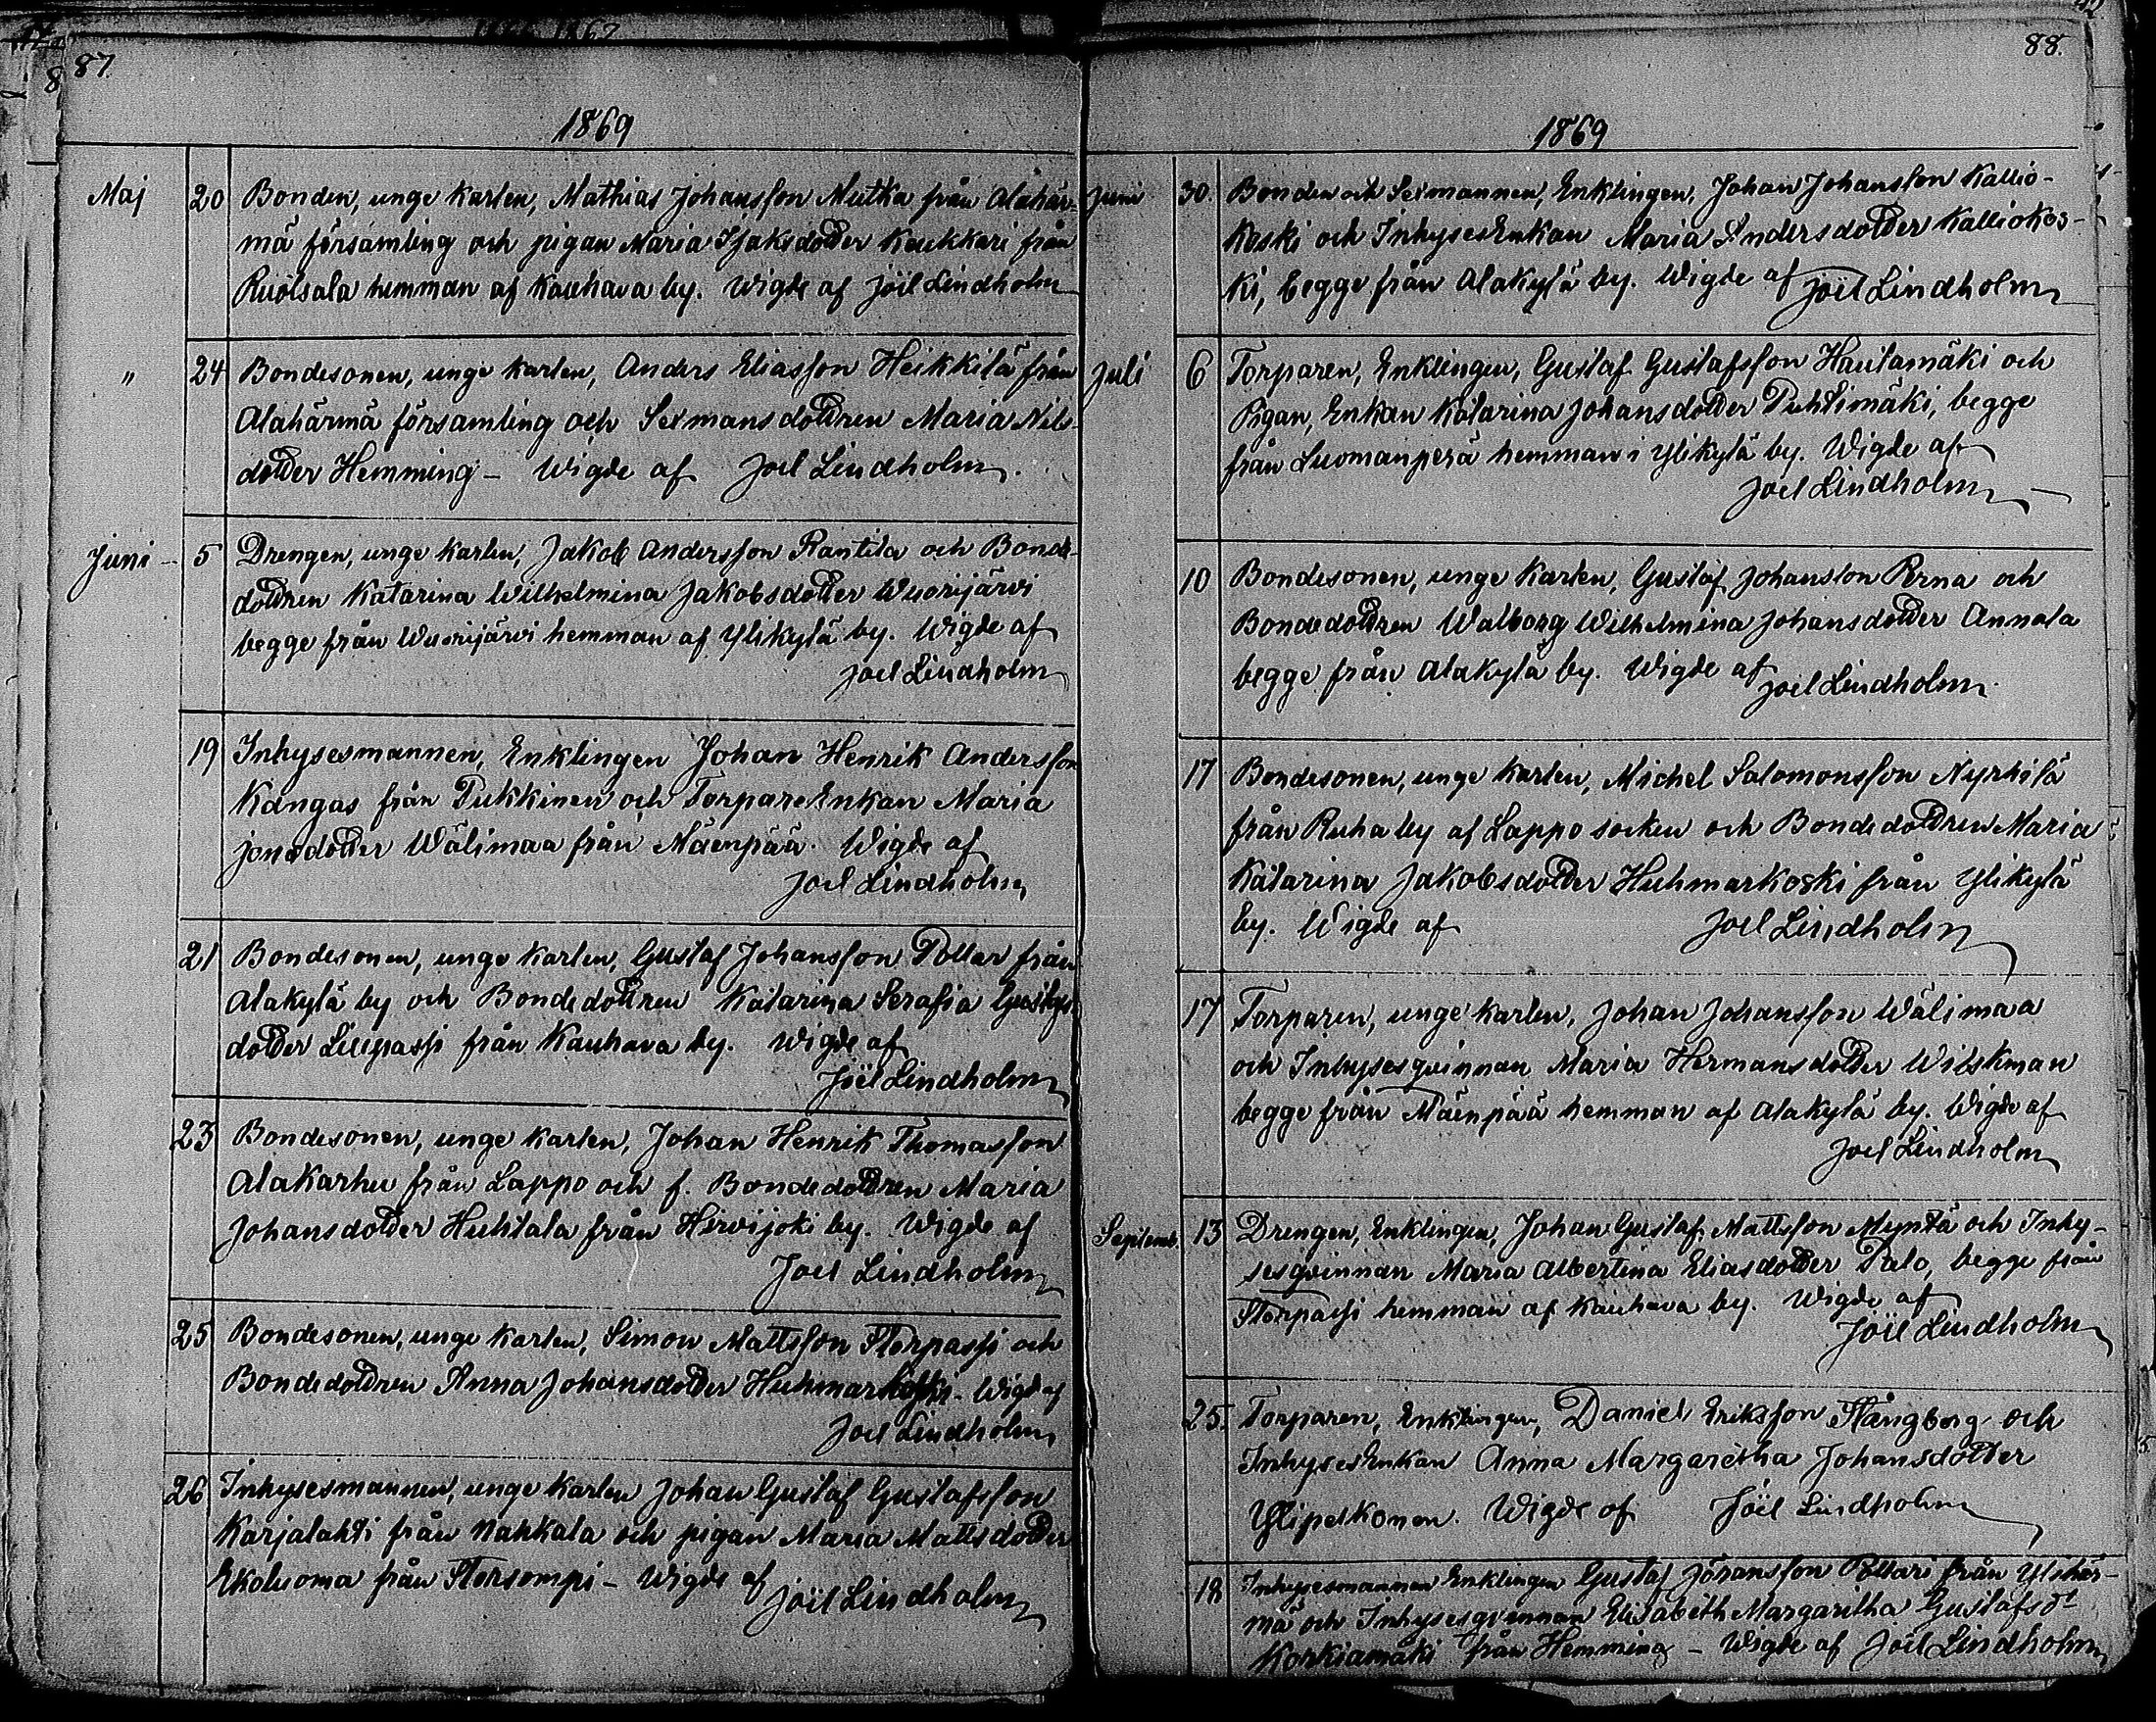 87.
1869
Maj 20 Bonden, unge karlen, Mathias Johansson Mutka från Alahär-
mä församling och pigan Maria Isaksdotter Kaukkari från
Ruotsala hemman af Kauhava by. Wigde af Joel Lindholm
" 24 Bondesonen, unge karlen, Anders Eliasson Heikkilä från
Alahärmä församling och Sexmansdottren Maria Nils-
dotter Hemming – Wigde af Joel Lindholm.
Juni – 5 Drengen, unge karlen, Jakob Andersson Rantila och Bonde-
dottren Katarina Wilhelmina Jakobsdotter Wuorijärvi
begge från Wuorijärvi hemman af Ylikylä by. Wigde af
Joel Lindholm
19 Inhysesmannen, Enklingen Johan Henrik Andersson
Kangas från Pukkinen och Torpareenkan Maria
Jonasdotter Wälimaa från Mäenpää. Wigde af
Joel Lindholm
21 Bondesonen, unge karlen, Gustaf Johansson Pollar från
Alakylä by och Bondedottren Katarina Serafia Gustafs
dotter Liipassi från Kauhava by. Wigde af
Joel Lindholm
23 Bondesonen, unge karlen, Johan Henrik Thomasson
Alakarhu från Lappo och f. Bondedottren Maria
Johansdotter Huhtala från Hirvijoki by. Wigde af
Joel Lindholm
25 Bondesonen, unge karlen, Simon Mattsson Storpassi och
Bondedottren Anna Johansdotter Huhmarkoski – Wigde af
Joel Lindholm
26 Inhysesmannen, unge karlen Johan Gustaf Gustafsson
Karjalahti från Nahkala och pigan Maria Mattsdotter
Ekoluoma från Storsompi – Wigde af Joel Lindholm
88.
1869
Juni 30. Bonden och Sexmannen, Enklingen, Johan Johansson Kallio-
koski och Inhysesenkan Maria Andersdotter Kalliokos-
ki, begge från Alakylä by. Wigde af Joel Lindholm
Juli 6 Torparen, Enklingen, Gustaf Gustafsson Hautamäki och
Pigan, Enkan Katarina Johansdotter Puhtimäki, begge
från Luomanperä hemman i Ylikylä by. Wigde af
Joel Lindholm
10 Bondesonen, unge karlen, Gustaf Johansson Perna och
Bondedottren Walborg Wilhelmina Johansdotter Annala
begge från Alakylä by. Wigde af Joel Lindholm
17 Bondesonen, unge karlen, Michel Salomonsson Nyrhilä
från Ruha by af Lappo socken och Bondedottren Maria
Katarina Jakobsdotter Huhmarkoski från Ylikylä
by. Wigde af Joel Lindholm
17 Torparen, unge karlen, Johan Johansson Wälimaa
och Inhysesqvinnan Maria Hermansdotter Wilskman
begge från Mäenpää hemman af Alakylä by. Wigde af
Joel Lindholm
Septemb. 13 Drengen, Enklingen, Johan Gustaf Mattsson Myntä och Inhy-
sesqvinnan Maria Albertina Eliasdotter Palo, begge från
Storpassi hemman af Kauhava by. Wigde af
Joel Lindholm
25. Torparen, Enklingen, Daniel Eriksson Stångberg och
Inhysesenkan Anna Margaretha Johansdotter
Ylipelkonen. Wigde af Joel Lindholm
18 Inhysesmannen Enklingen Gustaf Göransson Pollari från Ylihär-
mä och Inhysesqvinnan Elisabeth Margaritha Gustafsdt
Korkiamäki från Hemming – Wigde af Joel Lindholm